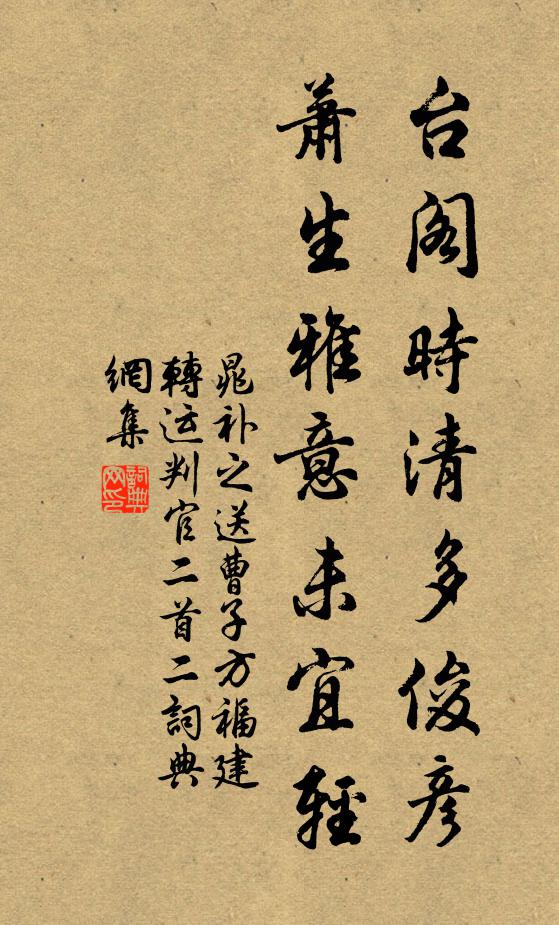 台阁時清多俊彦
蕭生雅意未宜輕
晁补之送曹子方福建
轉运判官二首二詞典
網集
詞典
网印